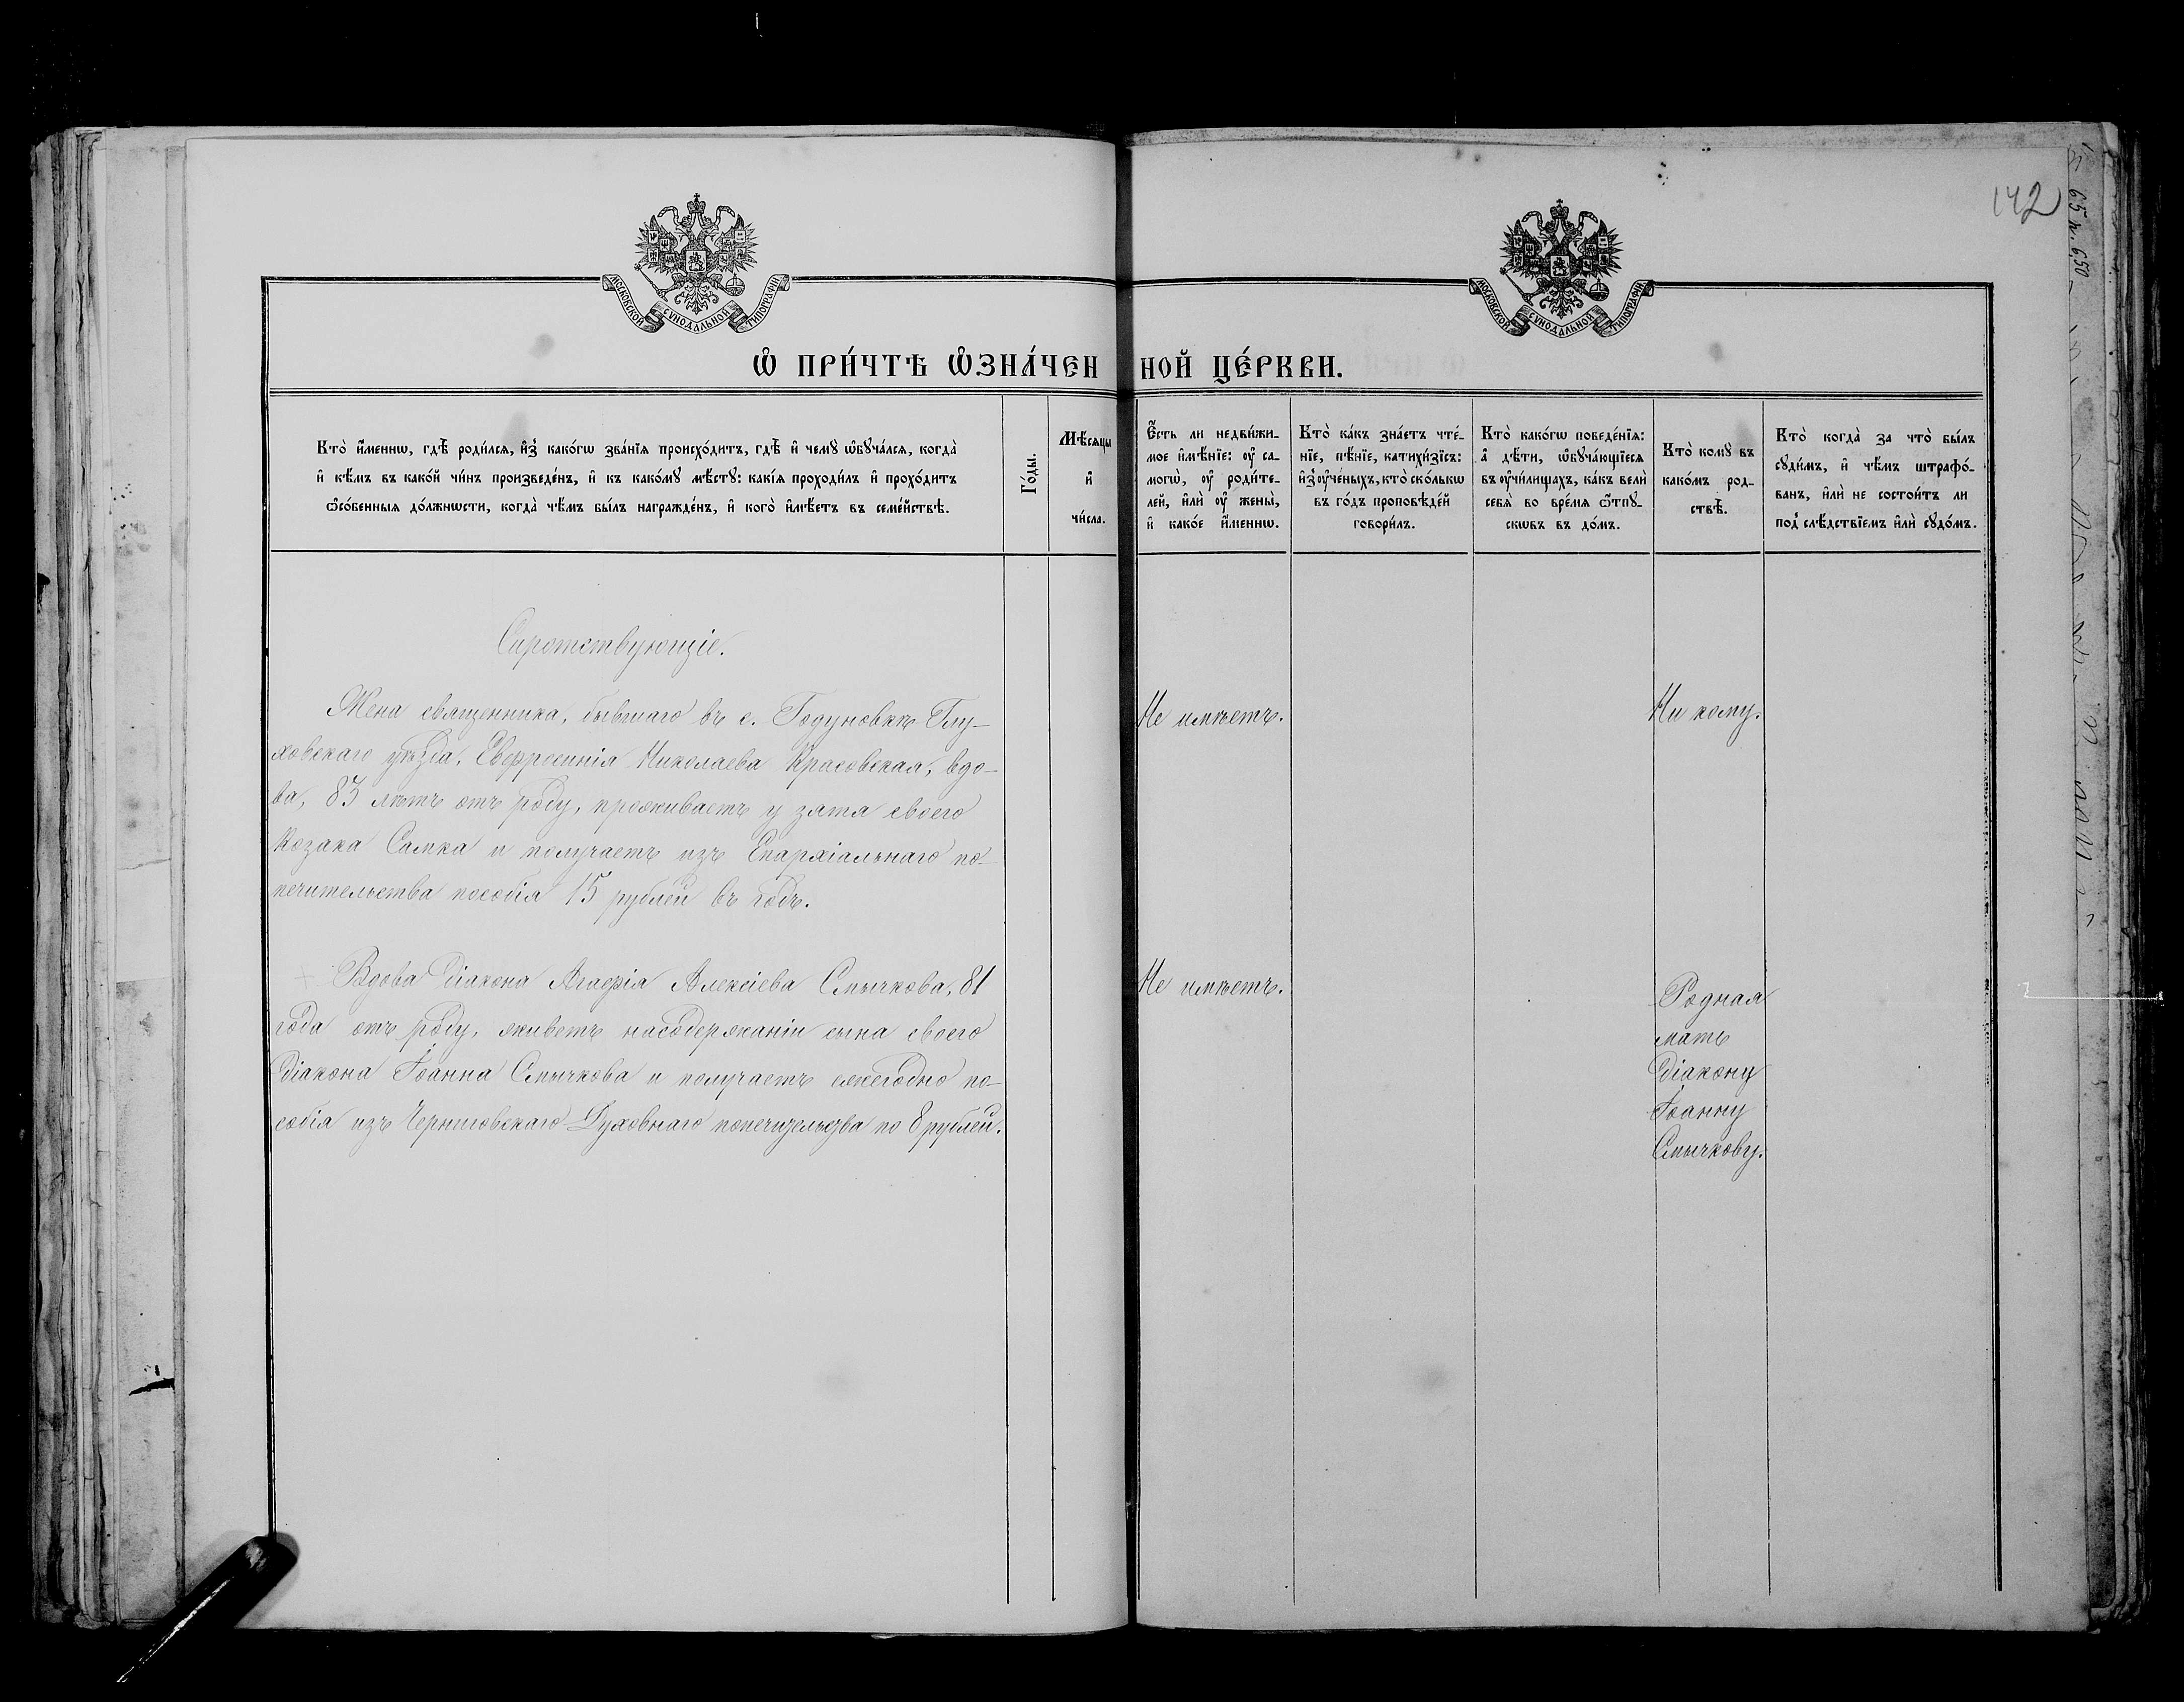 142
МОСКОВСКОЙ СѴНОДАЛЬНОЙ ТИПОГРАФІИ
МОСКОВСКОЙ СѴНОДАЛЬНОЙ ТИПОГРАФІИ
Ѡ ПРИ́ЧТѢ Ѡ҆ЗНА́ЧЕН НОЙ ЦЕ́РКВИ.
Кто̀ и҆́меннѡ, гдѣ̀ роди́лся, и҆з̾ како́гѡ зва́нїя происхо́дитъ, гдѣ̀ и҆ чемꙋ̀ ѡ҆бꙋча́лся, когда̀
и҆ кѣ́мъ въ како́й чи́нъ произведе́нъ, и҆ къ како́мꙋ мѣ́стꙋ: какі́я проходи́лъ и҆ прохо́дитъ
ѻ҆со́бенныя до́лжнѡсти, когда̀ чѣ́мъ бы́лъ награжде́нъ, и҆ кого̀ и҆мѣ́етъ въ семе́йствѣ.
Го́ды.
Мѣ́сяцы
и҆
чи́сла.
Е҆́сть ли недви́жи-
мое и҆мѣ́нїе: ᲂу҆ са-
могѡ̀, ᲂу҆ роди́те-
лей, и҆лѝ ᲂу҆ жены̀,
и҆ како́е и҆́меннѡ.
Кто̀ ка́къ зна́етъ чте́-
нїе, пѣ́нїе, катихи́зїсъ:
и҆з̾ ᲂу҆че́ныхъ, кто̀ ско́лькѡ
въ го́дъ проповѣ́дей
говори́лъ.
Кто̀ како́гѡ поведе́нїя:
а҆ дѣ́ти, ѡ҆бꙋча́ющїеся
въ ᲂу҆чи́лищахъ, ка́къ велѝ
себя̀ во вре́мя ѿпꙋ-
скѡвъ въ до́мъ.
Кто̀ комꙋ̀ въ
како́мъ род-
ствѣ̀.
Кто̀ когда̀ за что̀ бы́лъ
сꙋди́мъ, и҆ чѣ́мъ штрафо́-
ванъ, и҆лѝ не состои́тъ ли
под̾ слѣ́дствїемъ и҆лѝ сꙋдо́мъ.
Сиротствующіе.
Жена священника, бывшаго въ с. Годуновкѣ Глу-
ховскаго уѣзда, Евфросинія Николаева Красовская, вдо-
ва, 83 лѣтъ отъ роду, проживаетъ у зятя своего
козака Самка и получаетъ изъ Епархіальнаго по-
печительства пособія 15 рублей въ годъ.
Не имѣетъ.
Ни кому.
Вдова діакона Агафія Алексіева Смычкова, 81
года отъ роду, живетъ на содержаніи сына своего
діакона Іоанна Смычкова и получаетъ ежегодно по-
собія изъ Черниговскаго Духовнаго попечительства по 8 рублей.
Не имѣетъ.
Родная
мать
діакону
Іоанну
Смычкову.